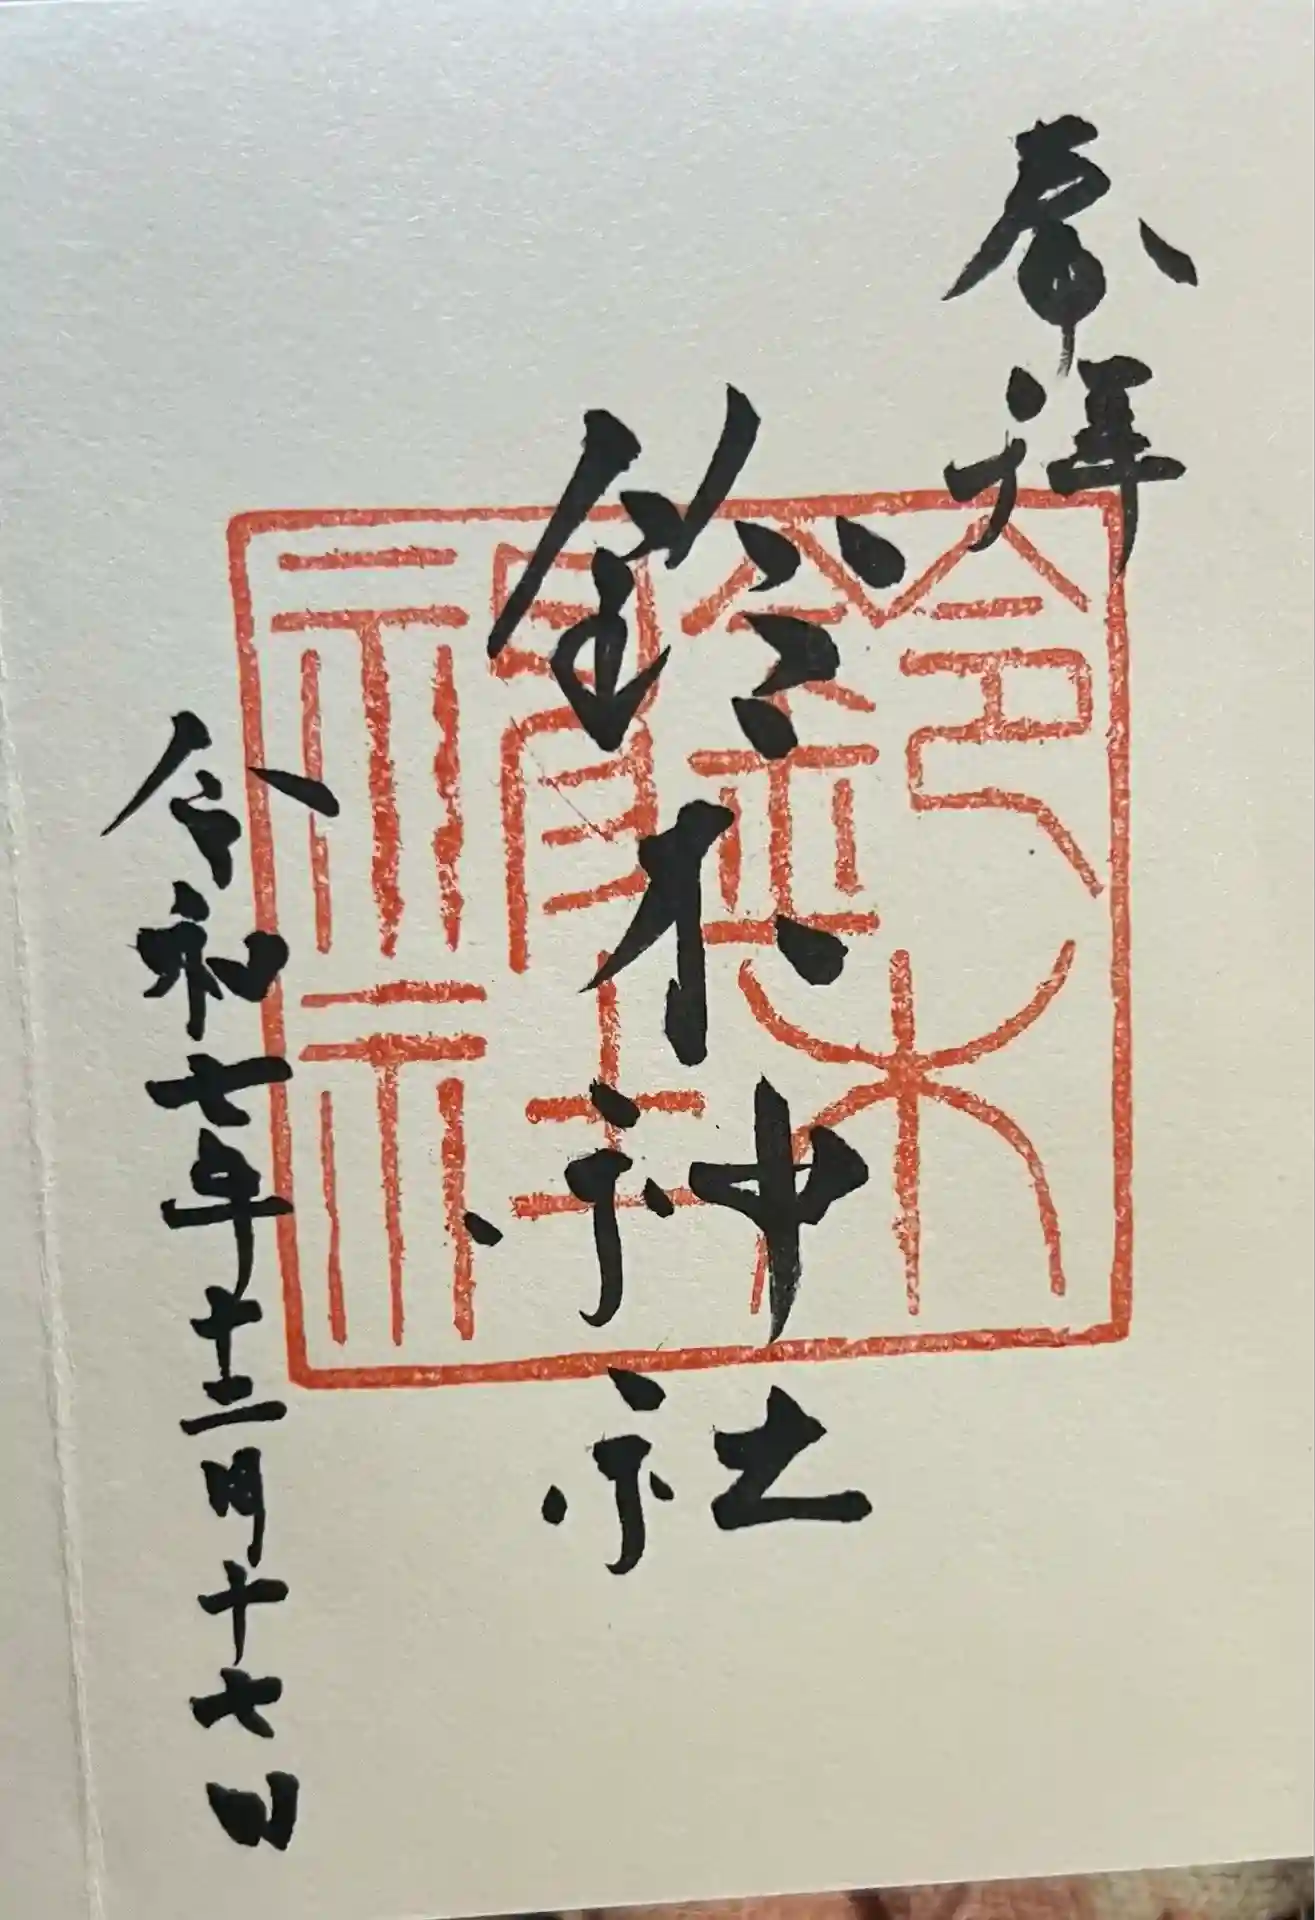 奉拝
鈴木神社
令和七年十二月十七日
鈴木
神社